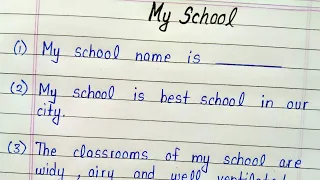 My School
(1) My school name is ________
(2) My school is best school in our
city.
(3) The classrooms of my school are
widy, airy and well ventilated